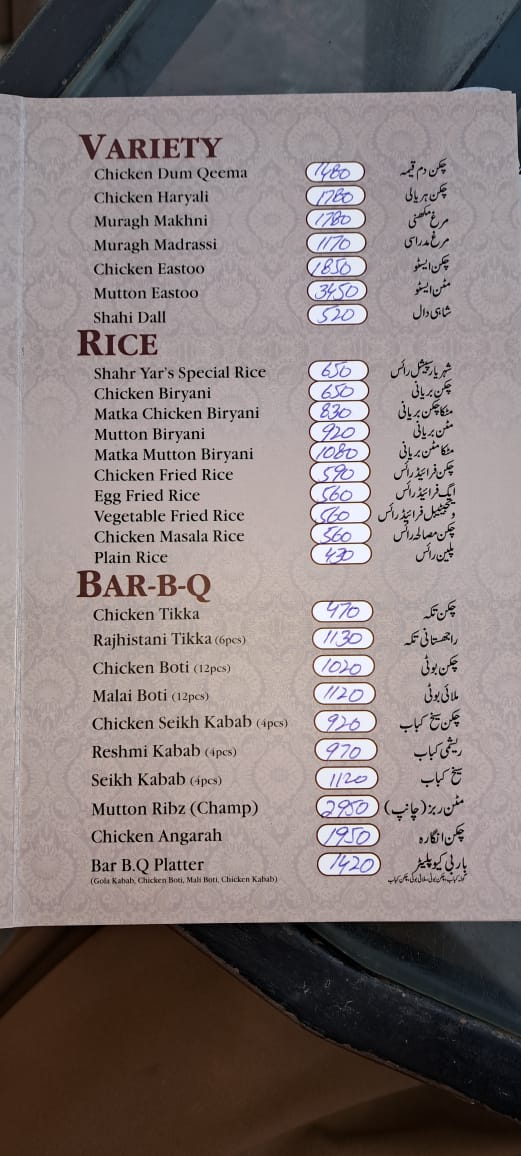 VARIETY
Chicken Dum Qeema 1480 چکن دم قیمہ
Chicken Haryali 1780 چکن ہریالی
Muragh Makhni 1780 مرغ مکھنی
Muragh Madrassi 1170 مرغ مدراسی
Chicken Eastoo 1850 چکن ایسٹو
Mutton Eastoo 3450 مٹن ایسٹو
Shahi Dall 520 شاہی دال
RICE
Shahr Yar's Special Rice 650 شہریار سپیشل رائس
Chicken Biryani 650 چکن بریانی
Matka Chicken Biryani 830 مٹکا چکن بریانی
Mutton Biryani 920 مٹن بریانی
Matka Mutton Biryani 1080 مٹکا مٹن بریانی
Chicken Fried Rice 590 چکن فرائیڈ رائس
Egg Fried Rice 560 ایگ فرائیڈ رائس
Vegetable Fried Rice 560 ویجیٹیبل فرائیڈ رائس
Chicken Masala Rice 560 چکن مصالحہ رائس
Plain Rice 430 پلین رائس
BAR-B-Q
Chicken Tikka 470 چکن تکہ
Rajhistani Tikka (6pcs) 1130 راجھستانی تکہ
Chicken Boti (12pcs) 1020 چکن بوٹی
Malai Boti (12pcs) 1120 ملائی بوٹی
Chicken Seikh Kabab (4pcs) 920 چکن سیخ کباب
Reshmi Kabab (4pcs) 970 ریشمی کباب
Seikh Kabab (4pcs) 1120 سیخ کباب
Mutton Ribz (Champ) 2950 مٹن ربز (چانپ)
Chicken Angarah 1950 چکن انگارہ
Bar B.Q Platter 1420 بار بی کیو پلیٹر
(Gola Kabab, Chicken Boti, Mali Boti, Chicken Kabab) گولہ کباب، چکن بوٹی، ملائی بوٹی، چکن کباب